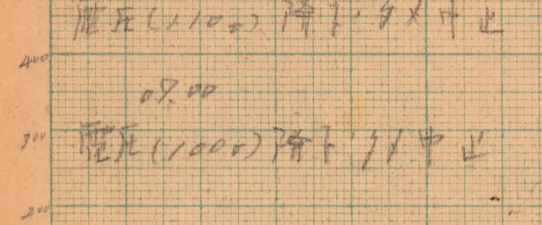 電圧(1100) 降下ノタメ中止
400
09.00
300
電圧(1000) 降下ノタメ中止
200